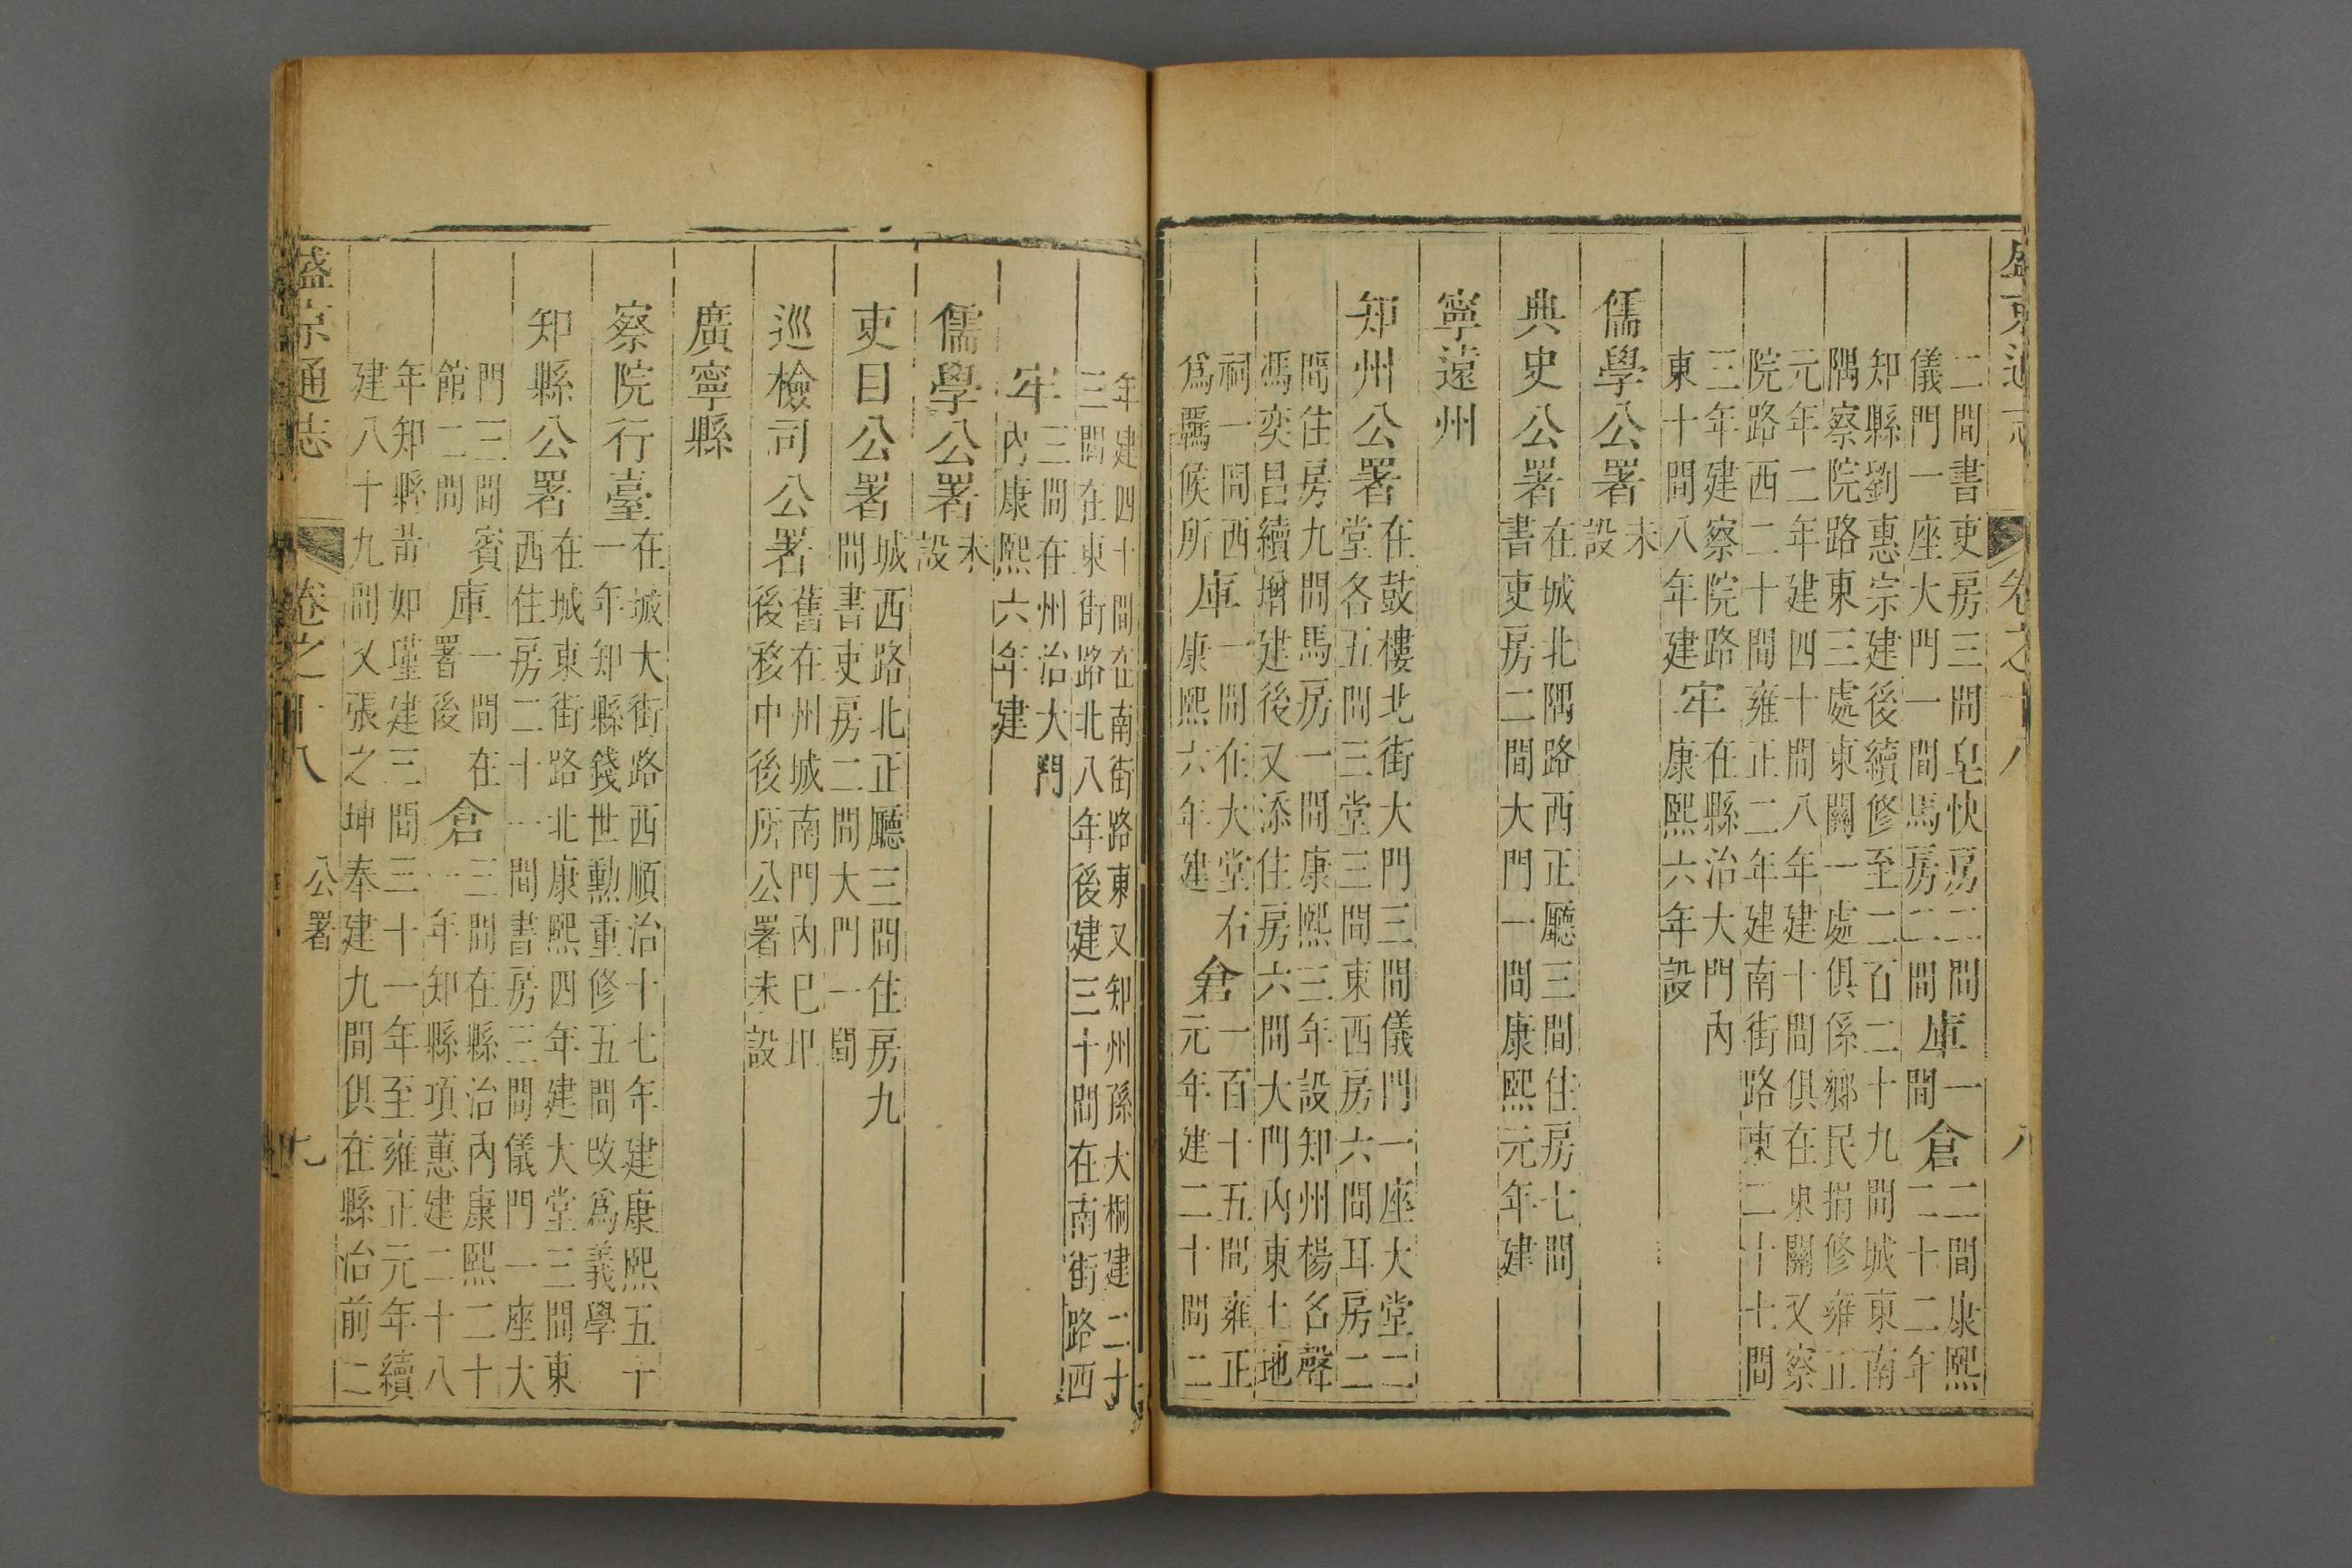 盛京通志 卷之十八 八
二間書吏房三間皂快房二間庫一倉二間康熙
儀門一座大門一間馬房二間 間 二十二年
知縣劉惠宗建後續修至二百二十九間城東南
隅察院路東三處東關一處俱係鄉民捐修雍正
元年二年建四十間八年建十間俱在東關又察
院路西二十間雍正二年建南街路東二十七間
三年建察院路牢在縣治大門內
東十間八年建 康熙六年設
儒學公署未
設
典史公署在城北隅路西正廳三間住房七間
書吏房二間大門一間康熙元年建
寧遠州
知州公署在鼓樓北街大門三間儀門一座大堂二
堂各五間三堂三間東西房六間耳房二
間住房九間馬房一間康熙三年設知州楊名聲
馮奕昌續增建後又添住房六間大門內東土地
祠一間西庫一間在大堂右倉一百十五間雍正
為羈候所 康熙六年建 元年建二十間二
年建四十間在南街路東又知州孫大桐建二十
三間在東街路北八年後建三十間在南街路西
牢三間在州治大門
內康熙六年建
儒學公署未
設
吏目公署城西路北正廳三間住房九
間書吏房二間大門一間
巡檢司公署舊在州城南門內已圯
後移中後所公署未設
廣寧縣
察院行臺在城大街路西順治十七年建康熙五十
一年知縣錢世勳重修五間改為義學
知縣公署在城東街路北康熙四年建大堂三間東
西住房二十一間書房三間儀門一座大
門三間賓庫一間在倉三間在縣治內康熙二十
館二間 署後 一年知縣項蕙建二十八
年知縣黃如瑾建三間三十一年至雍正元年續
建八十九間又張之坤奉建九間俱在縣治前二
盛京通志 卷之十八 公署 九